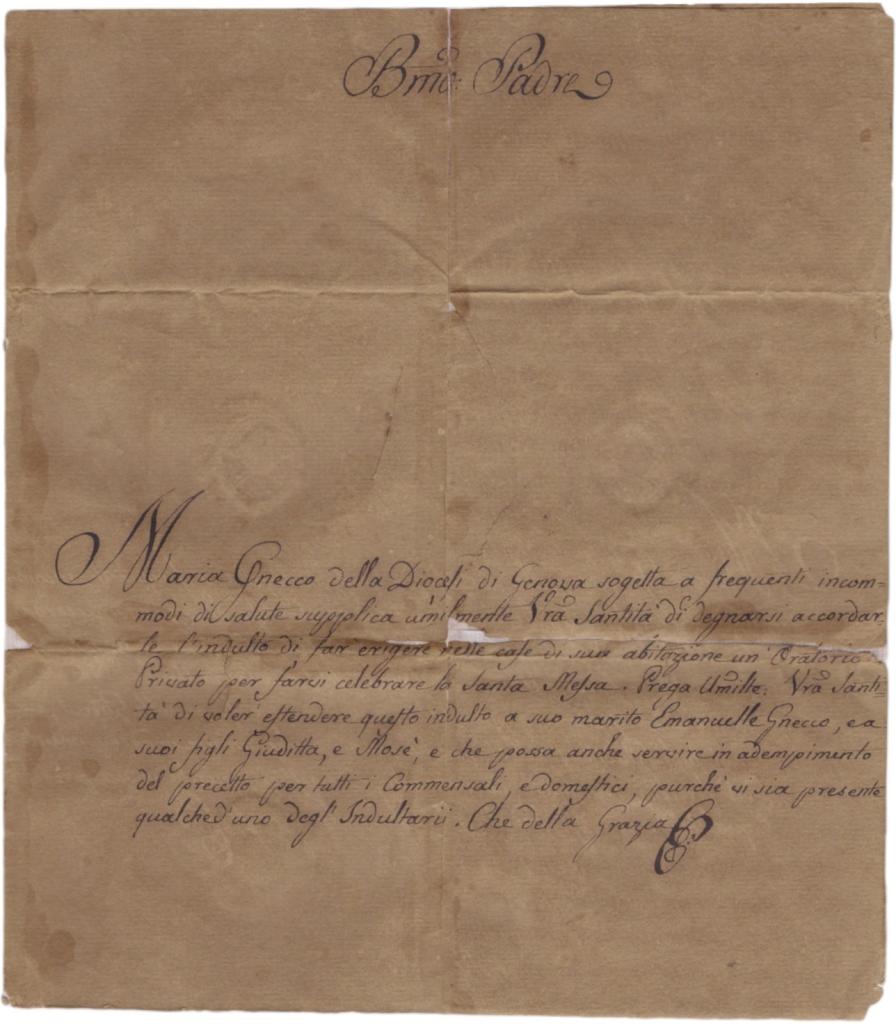 Bmo: Padre
Maria Gnecco della Diocesi di Genova sogetta a frequenti incom=
modi di salute supplica umilmente Vra Santità di degnarsi accordar=
le l'indulto di far erigere nelle case di sua abitazione un' Oratorio
Privato per farvi celebrare la Santa Messa. Prega Umilte: Vra Santi=
tà di voler estendere questo indulto a suo marito Emanuelle Gnecco, e a
suoi figli Giuditta, e Mosè, e che possa anche servire in adempimento
del precetto per tutti i Commensali, e domestici, purchè vi sia presente
qualched'uno degl' Indultarii. Che della Grazia